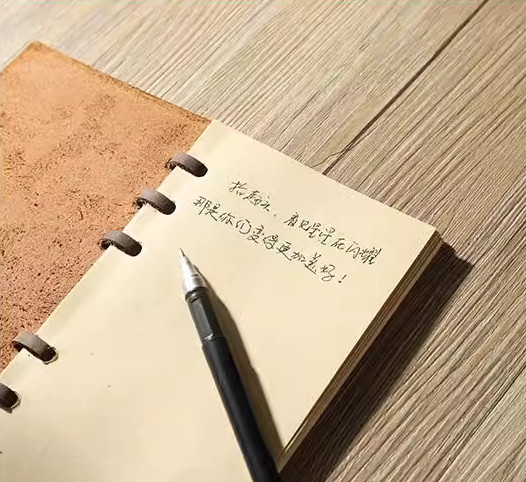 抬起头，看见星星在闪耀
那是你们变得更加美好！